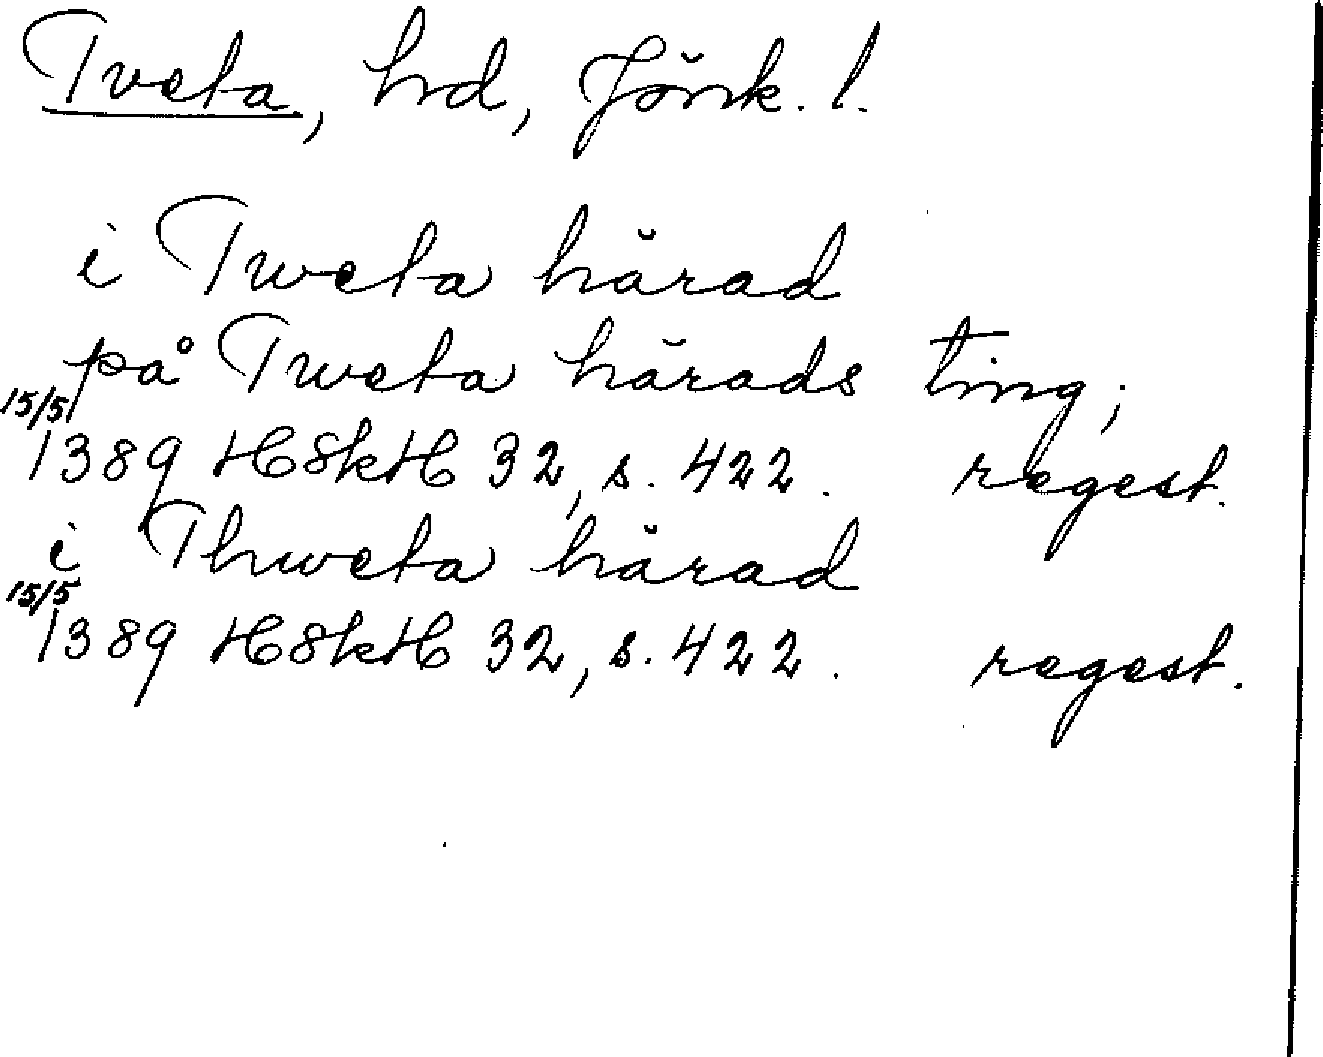 Tveta, hd, Jönk. l.
i Tweta härad
på Tweta härads ting;
15/5
1389 HSkH 32, s. 422. regest.
i Thweta härad
15/5
1389 HSkH 32, s. 422. regest.